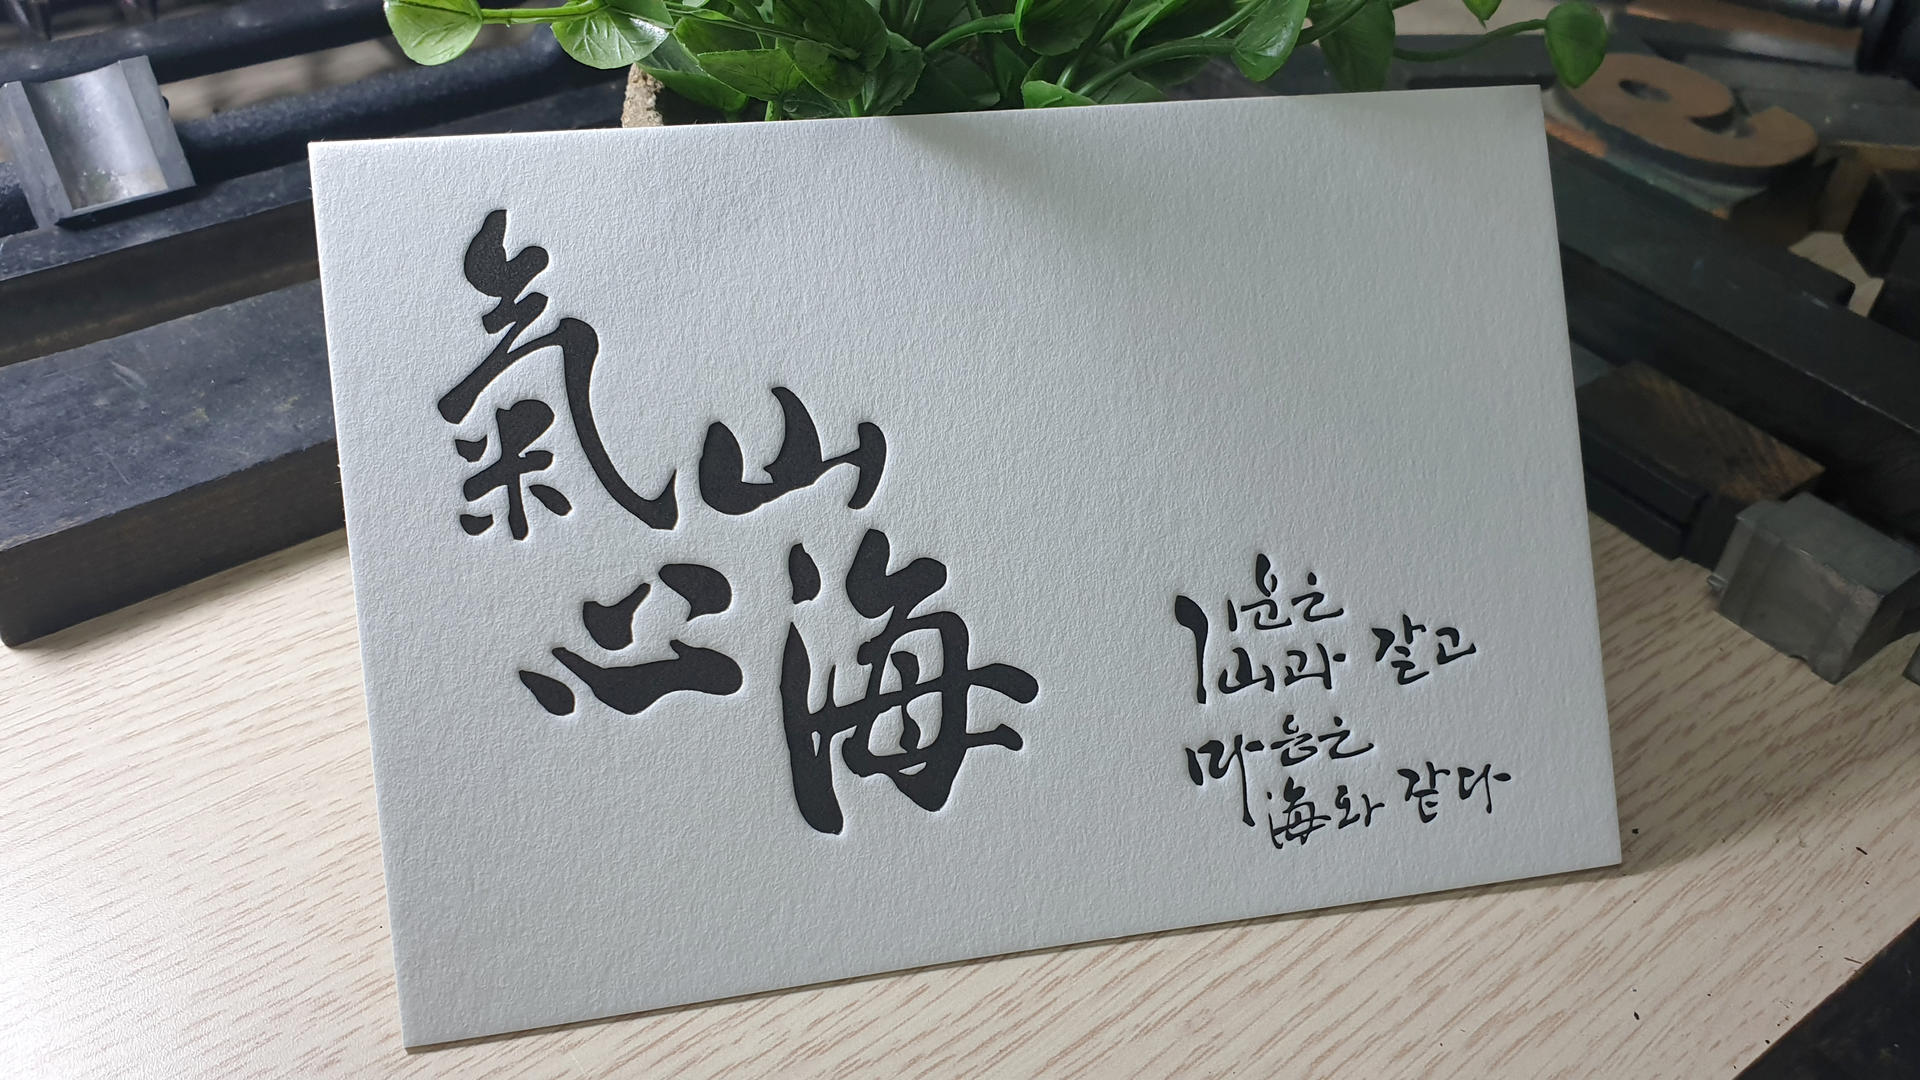 氣山
心海
기운은
山과 같고
마음은
海와 같다